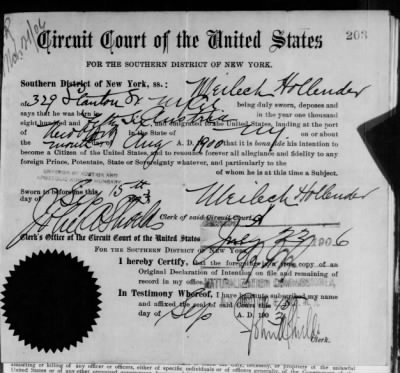 Circuit Court of the United States
203
FOR THE SOUTHERN DISTRICT OF NEW YORK.
Southern District of New York, ss.: Meilech Hollender
of 329 Stanton St being duly sworn, deposes and
says that he was born in in the year one thousand
eight hundred and and emigrated to the United States, landing at the port
of New York in the State of on or about
the month of Aug A. D. 1900 that it is bona fide his intention to
become a Citizen of the United States, and to renounce forever all allegiance and fidelity to any
foreign Prince, Potentate, State or Sovereignty whatever, and particularly to the
of whom he is at this time a Subject.
Sworn to before me this 15th Meilech Hollender
day of Sep
Clerk of said Circuit Court.
Clerk's Office of the Circuit Court of the United States July 23 1906
FOR THE SOUTHERN DISTRICT OF NEW YORK
I hereby Certify, that the foregoing is a true copy of an
Original Declaration of Intention on file and remaining of
record in my office.
In Testimony Whereof, I have hereunto subscribed my name
and affixed the seal of said Court this
day of Sep A. D. 190
Clerk.